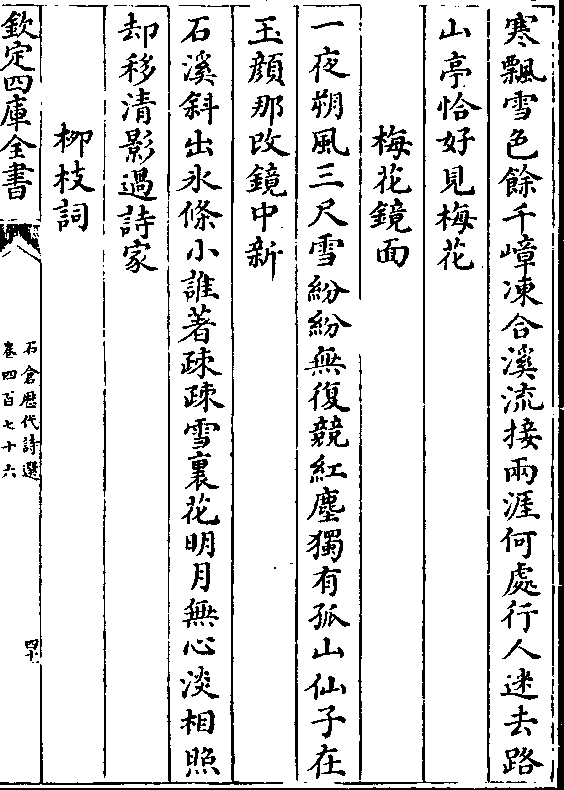 寒飄雪色餘千嶂凍合溪流接兩涯何處行人迷去路
山亭恰好見梅花
梅花鏡面
一夜朔風三尺雪紛紛無復競紅塵獨有孤山仙子在
玉顔那改鏡中新
石溪斜出氷條小誰著疎疎雪裏花明月無心淡相照
却移清影過詩家
柳枝詞
欽定四庫全書
石倉歴代詩選
卷四百七十六